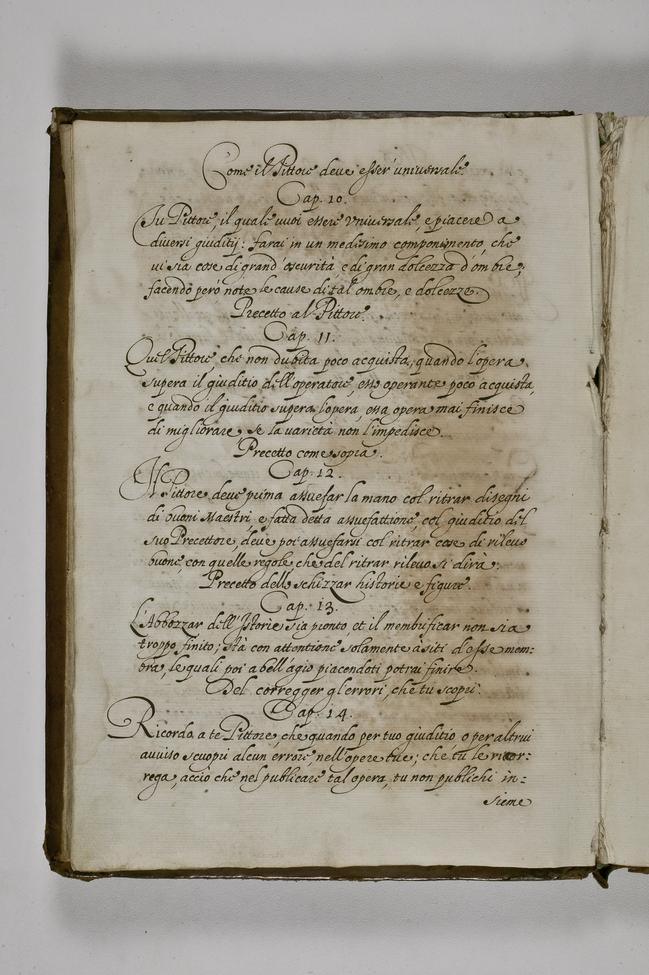 Come il Pittore deve esser universale
Cap. 10.
Tu Pittore, il quale vuoi essere universale, e piacere a
diversi giuditij: farai in un medesimo componimento, che
vi sia cose di grand'oscurità, e di gran dolcezza d'ombre;
facendo però note le cause di tal'ombre, e dolcezze.
Precetto al Pittore.
Cap. 11.
Quel Pittore che non dubita poco acquista, quando l'opera
supera il giuditio dell'operatore, esso operante poco acquista,
e quando il giuditio supera l'opera, essa opera mai finisce
di migliorare, se la varietà non l'impedisce.
Precetto come sopra.
Cap. 12.
Il Pittore deve prima assuefar la mano col ritrar disegni
di buoni Maestri, e fatta detta assuefattione, col giuditio del
suo Precettore, deve poi assuefarsi col ritrar cose di rilevo
buone, con quelle regole, che del ritrar rilevo si dirà.
Precetto dell schizzar historie e figure.
Cap. 13.
L'Abbozzar dell'Istorie sia pronto et il membrificar non sia
troppo finito; stà con attentione solamente a siti d'esse mem:
bra, le quali poi a bell'agio piacendoti potrai finire.
Del corregger gl'errori, che tu scopri.
Cap. 14.
Ricordo a te Pittore, che quando per tuo giuditio o per altrui
avviso scuopri alcun errore, nell'opere tue; che tu le ricor:
rega, acciò che nel publicare tal opera, tu non publichi in=
sieme